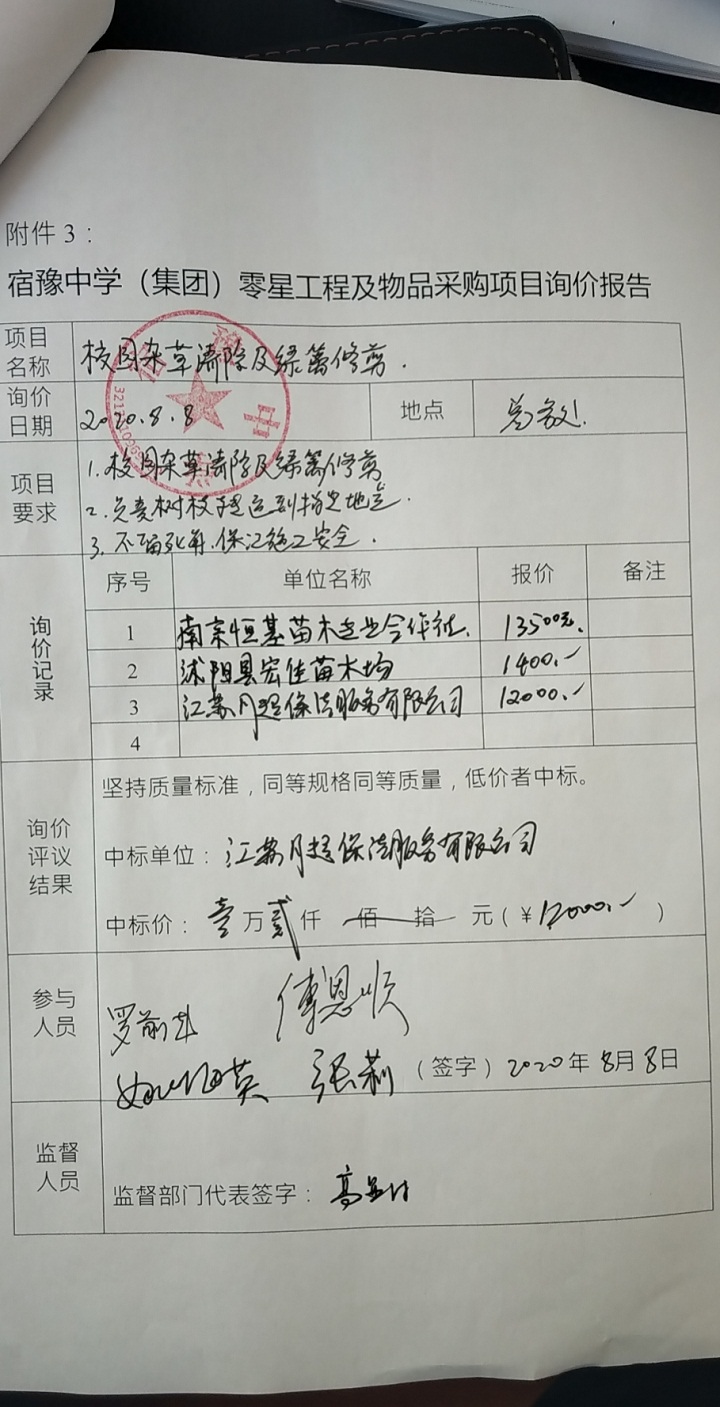 附件 3：
宿豫中学（集团）零星工程及物品采购项目询价报告
项目名称 校园杂草清除及绿篱修剪.
询价日期 2020.8.8 地点 总务处.
项目要求 1.校园杂草清除及绿篱修剪
2.负责树枝 运到指定地点.
3. 不留死角.保证施工安全.
询价记录 序号 单位名称 报价 备注
1 南京恒基苗木 业合作社. 13500元.
2 沭阳县宏佳苗木场 1400.-
3 江苏月 保洁服务有限公司 12000.-
4
询价评议结果 坚持质量标准，同等规格同等质量，低价者中标。
中标单位：江苏月 保洁服务有限公司
中标价：壹万贰仟 佰 拾 元（¥12000.-）
参与人员 傅恩顺
张莉（签字）2020年8月8日
监督人员 监督部门代表签字：高